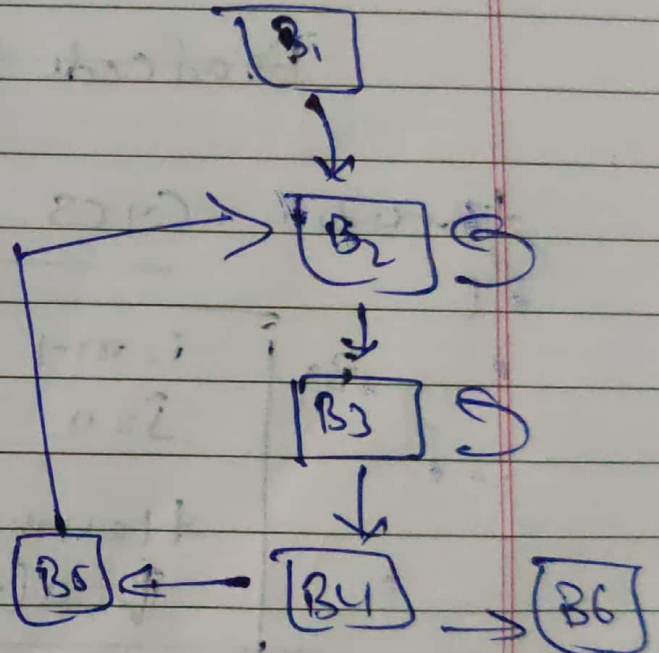 B1
B2
B3
B5 B4 B6